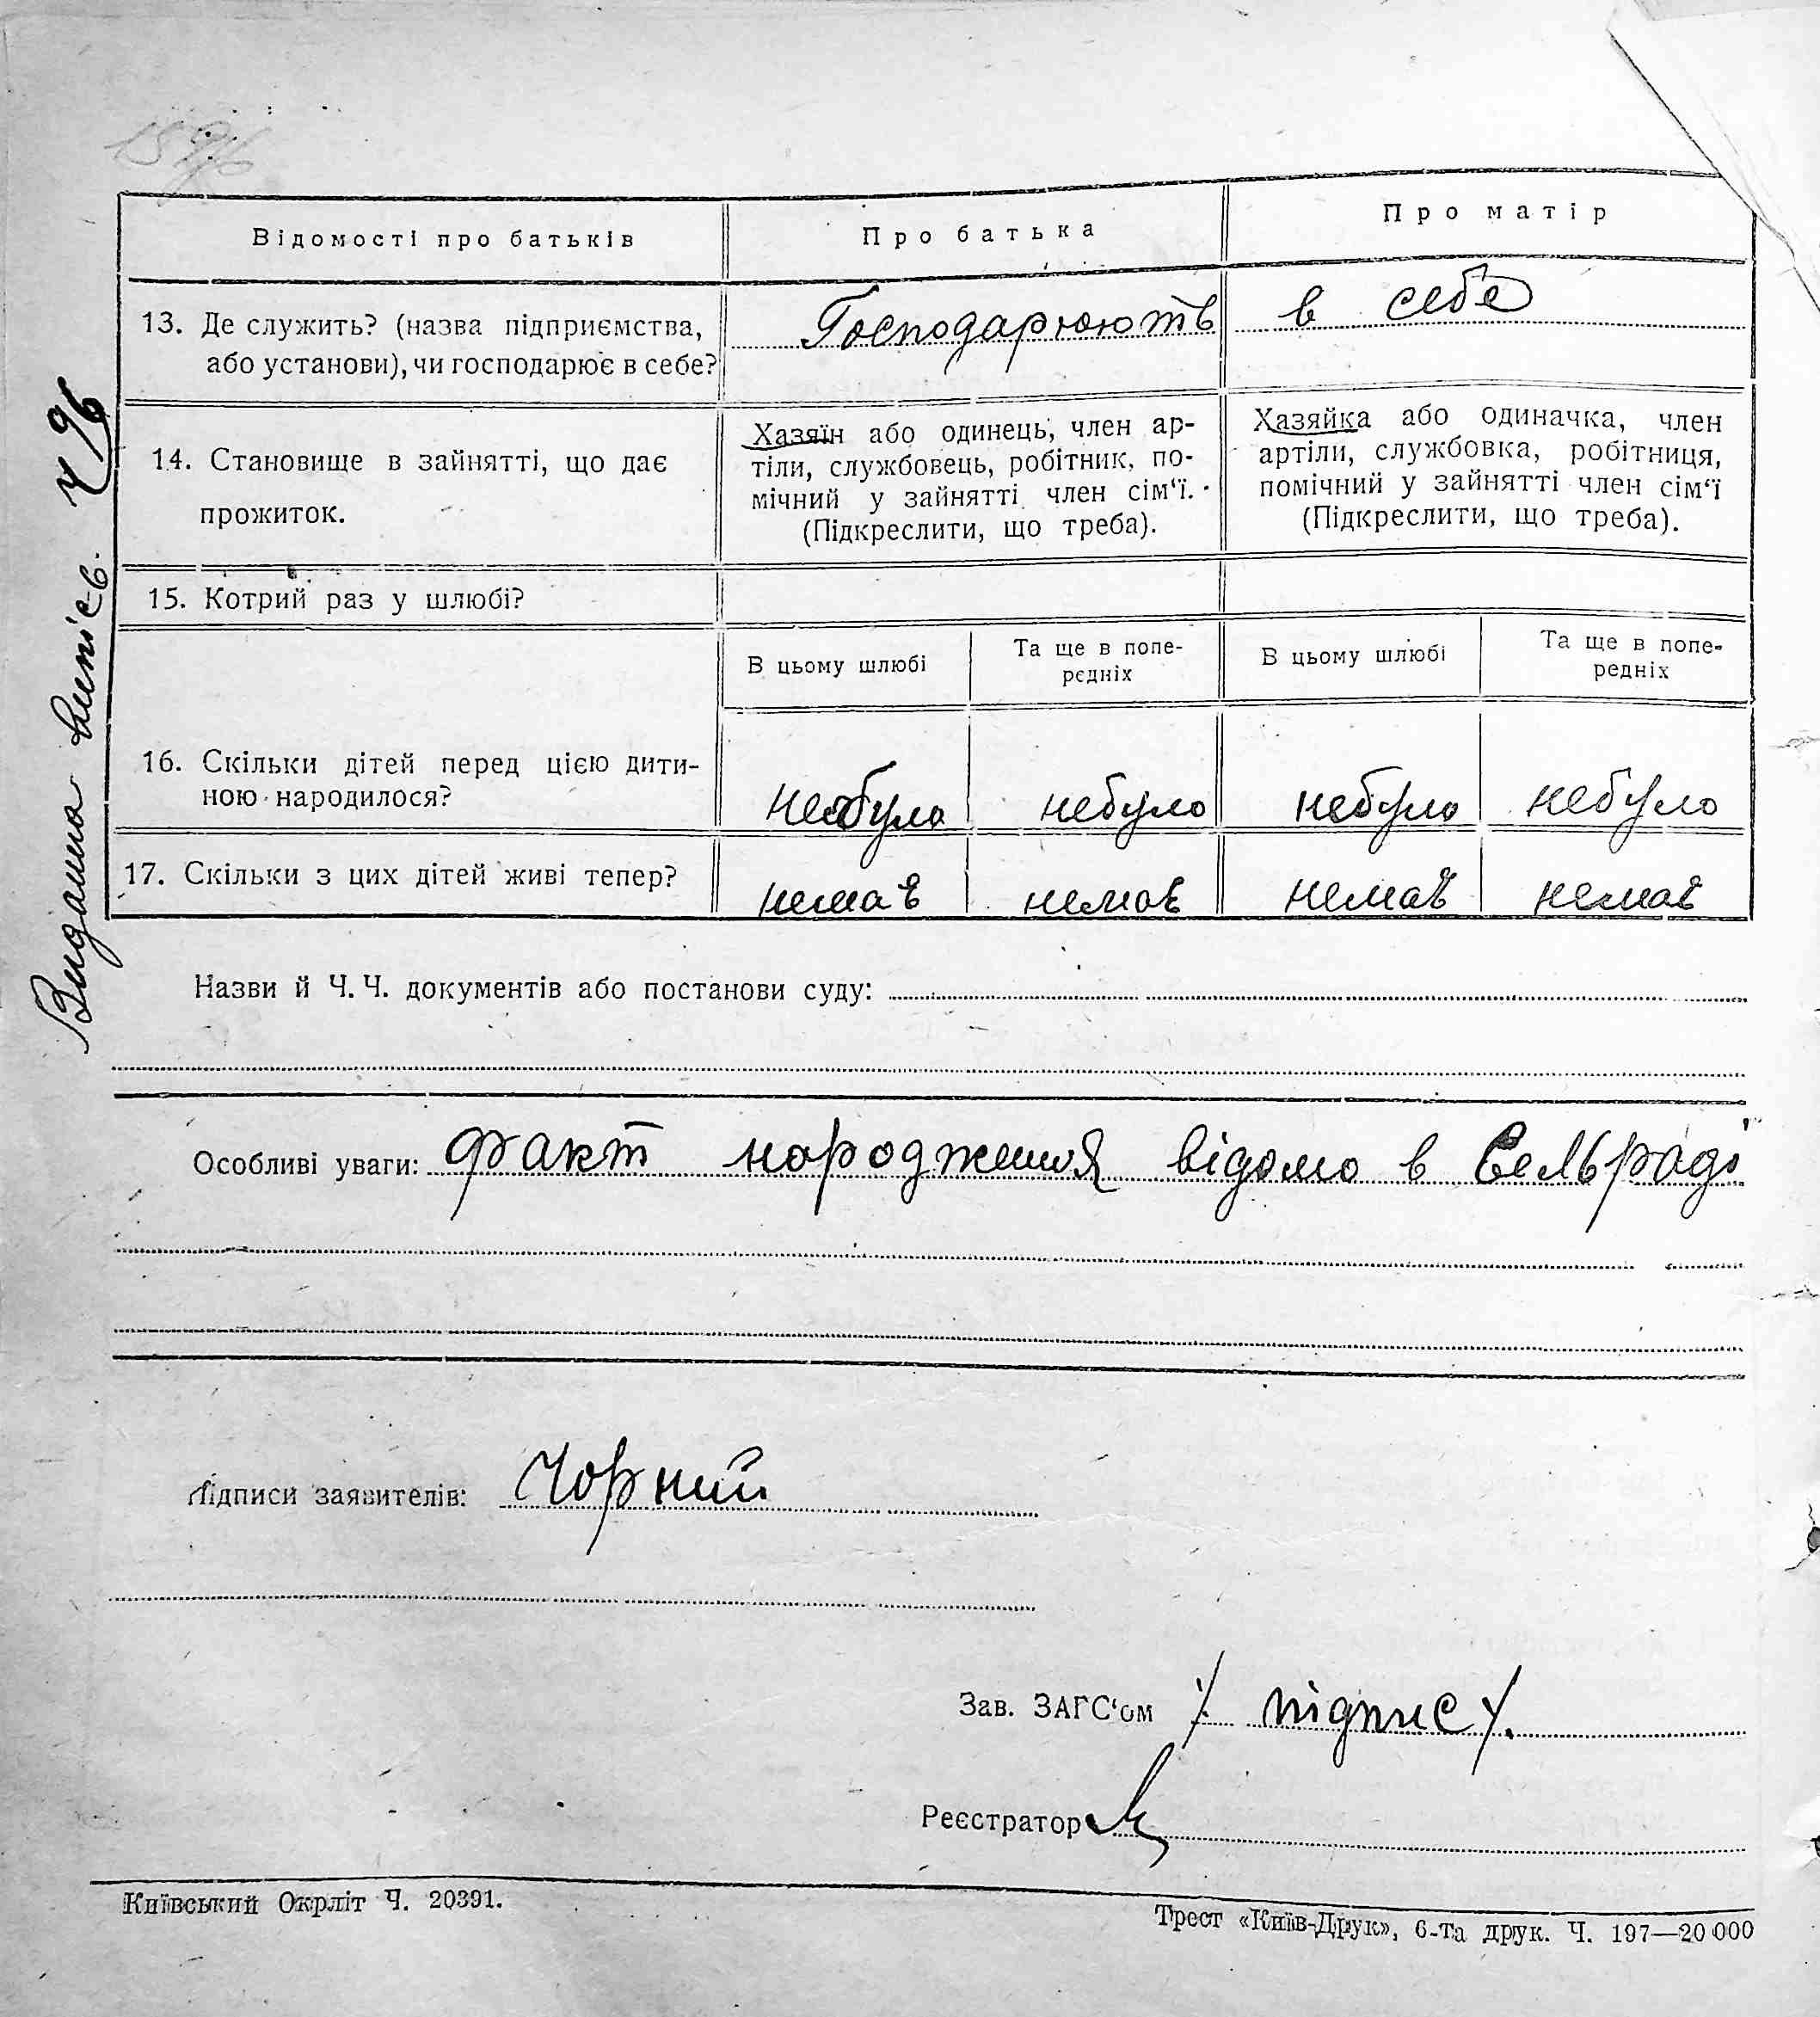 Відомості про батьків
Про батька
Про матір
13. Де служить? (назва підприємства,
або установи), чи господарює в себе?
Господарюють
в себе
14. Становище в зайнятті, що дає
прожиток.
Хазяїн або одинець, член ар-
тіли, службовець, робітник, по-
мічний у зайнятті член сім'ї.
(Підкреслити, що треба).
Хазяйка або одиначка, член
артіли, службовка, робітниця,
помічний у зайнятті член сім'ї
(Підкреслити, що треба).
15. Котрий раз у шлюбі?
В цьому шлюбі
Та ще в попе-
редніх
В цьому шлюбі
Та ще в попе-
редніх
16. Скільки дітей перед цією дити-
ною народилося?
небуло
небуло
небуло
небуло
17. Скільки з цих дітей живі тепер?
немає
немає
немає
немає
Видана випіс
Назви й Ч. Ч. документів або постанови суду:
Особливі уваги: факт народження відомо в Сельраді
Підписи заявителів: Чорний
Зав. ЗАГС'ом /. підпис /.
Реєстратор
Київський Окрліт Ч. 20391.
Трест «Київ-Друк», 6-та друк. Ч. 197—20 000